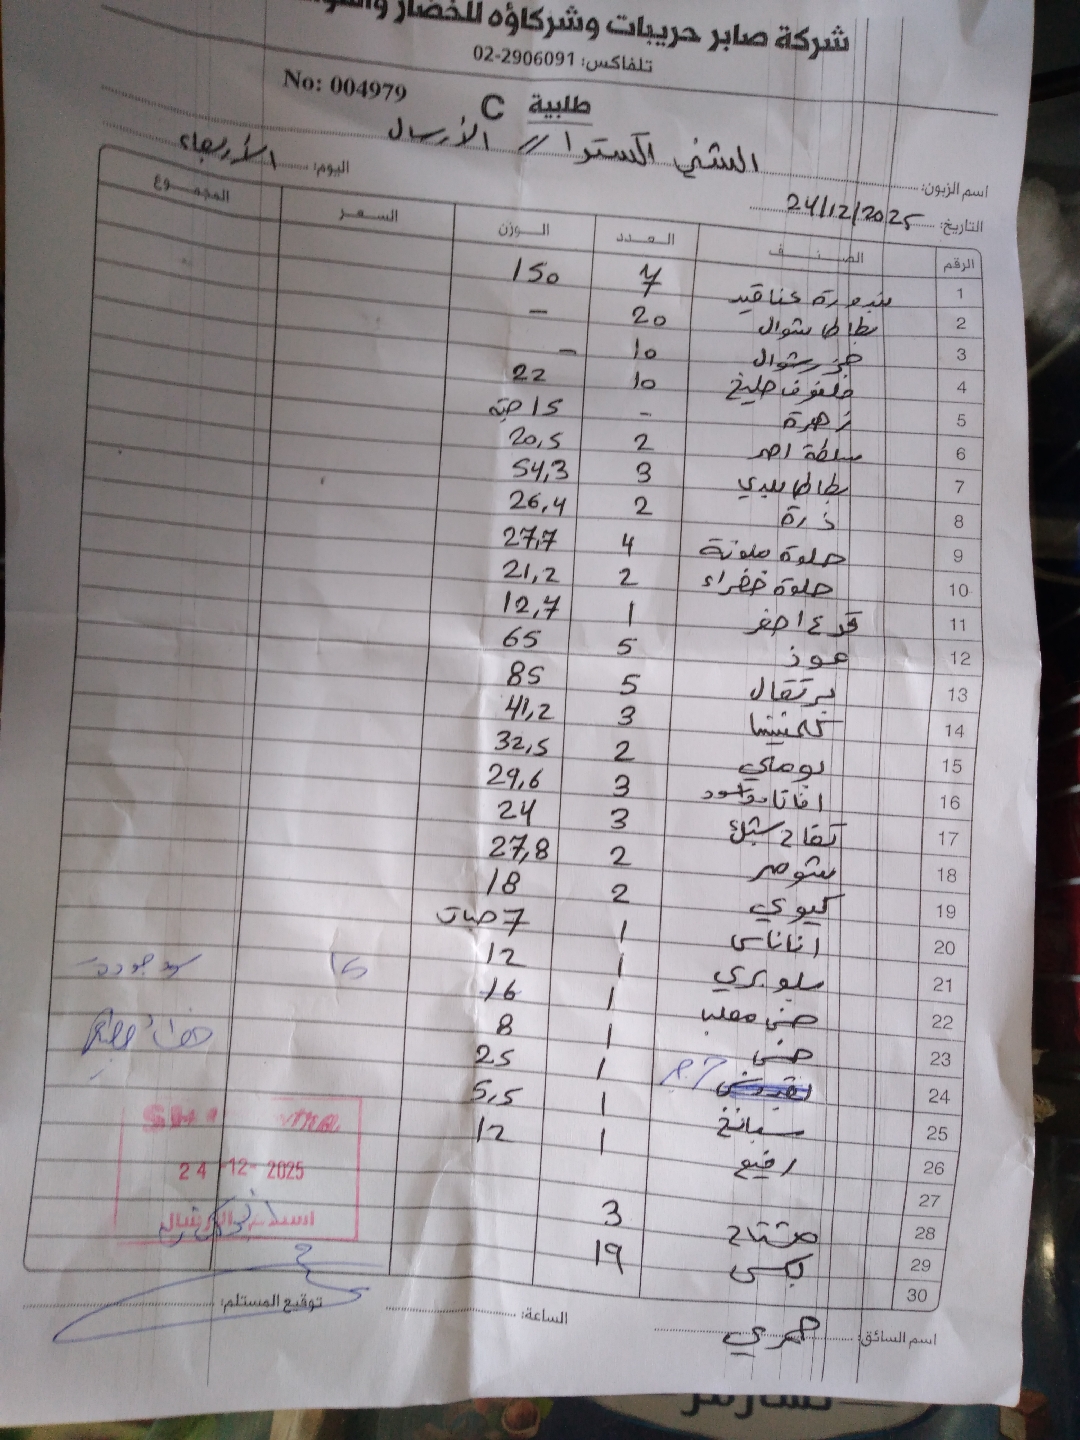 شركة صابر حريبات وشركاؤه للخضار
تلفاكس: 02-2906091
No: 004979
طلبية C
اسم الزبون: الشني اكسترا // الأرسال
اليوم: الأربعاء
التاريخ: 24/12/2025
الرقم الصنف العدد الوزن السعر المجموع
1 بندورة عناقيد 7 150
2 بطاطا شوال 20 -
3 جزر شوال 10 -
4 ملفوف 10 22
5 زهرة - 15 حبة
6 سلطة احمر 2 20,5
7 بطاطا بلدي 3 54,3
8 ذرة 2 26,4
9 حلوة ملونة 4 27,7
10 حلوة خضراء 2 21,2
11 قرع اصفر 1 12,7
12 موز 5 65
13 برتقال 5 85
14 كلمنتينا 3 41,2
15 بوملي 2 32,5
16 3 29,6
17 تفاح 3 24
18 شومر 2 27,8
19 كيوي 2 18
20 اناناس 1 7 حبات
21 1 12
22 1 16
23 1 8
24 1 25
25 سبانخ 1 5,5
26 رفيع 1 12
27
28 مشتاح 3
29 بكس 19
30
24-12-2025
توقيع المستلم:
الساعة:
اسم السائق: